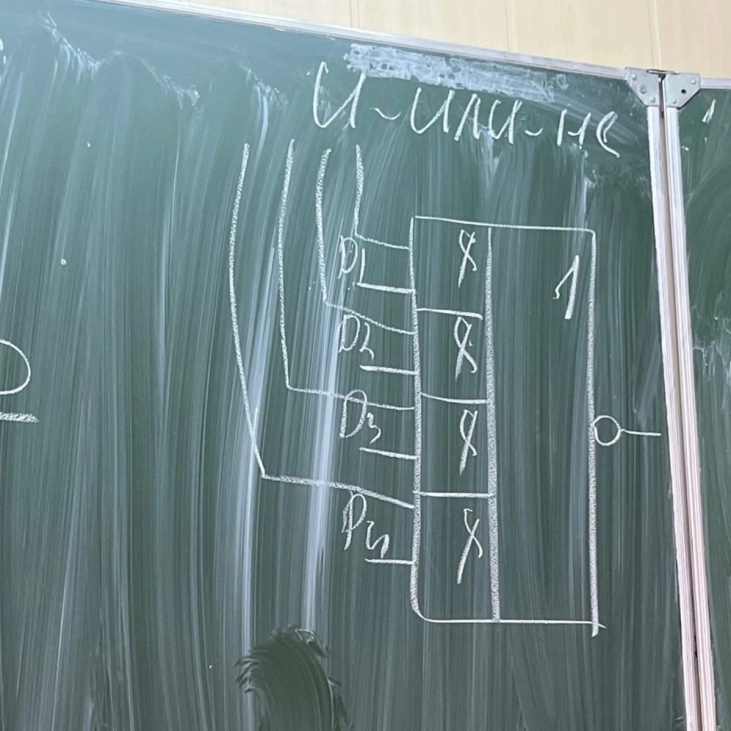 И-ИЛИ-НЕ
D1 & 1
D2 &
D3 &
D4 &